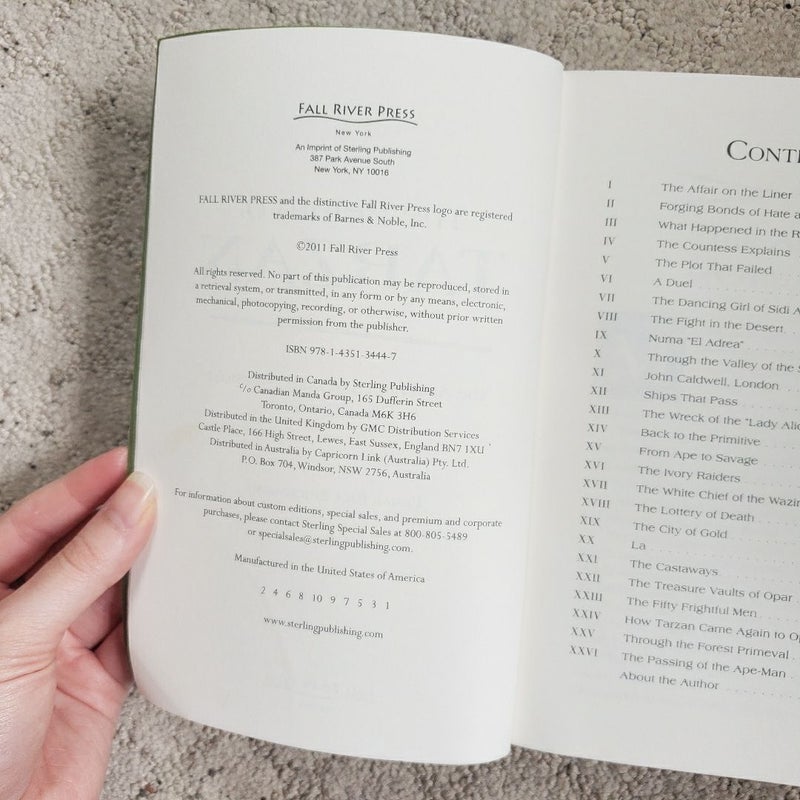 FALL RIVER PRESS
New York
An Imprint of Sterling Publishing
387 Park Avenue South
New York, NY 10016
FALL RIVER PRESS and the distinctive Fall River Press logo are registered
trademarks of Barnes & Noble, Inc.
©2011 Fall River Press
All rights reserved. No part of this publication may be reproduced, stored in
a retrieval system, or transmitted, in any form or by any means, electronic,
mechanical, photocopying, recording, or otherwise, without prior written
permission from the publisher.
ISBN 978-1-4351-3444-7
Distributed in Canada by Sterling Publishing
c/o Canadian Manda Group, 165 Dufferin Street
Toronto, Ontario, Canada M6K 3H6
Distributed in the United Kingdom by GMC Distribution Services
Castle Place, 166 High Street, Lewes, East Sussex, England BN7 1XU
Distributed in Australia by Capricorn Link (Australia) Pty. Ltd.
P.O. Box 704, Windsor, NSW 2756, Australia
For information about custom editions, special sales, and premium and corporate
purchases, please contact Sterling Special Sales at 800-805-5489
or specialsales@sterlingpublishing.com.
Manufactured in the United States of America
2 4 6 8 10 9 7 5 3 1
www.sterlingpublishing.com
CONTE
I The Affair on the Liner
II Forging Bonds of Hate a
III What Happened in the R
IV The Countess Explains
V The Plot That Failed
VI A Duel
VII The Dancing Girl of Sidi A
VIII The Fight in the Desert
IX Numa "El Adrea"
X Through the Valley of the S
XI John Caldwell, London
XII Ships That Pass
XIII The Wreck of the "Lady Alic
XIV Back to the Primitive
XV From Ape to Savage
XVI The Ivory Raiders
XVII The White Chief of the Wazir
XVIII The Lottery of Death
XIX The City of Gold
XX La
XXI The Castaways
XXII The Treasure Vaults of Opar
XXIII The Fifty Frightful Men
XXIV How Tarzan Came Again to Op
XXV Through the Forest Primeval
XXVI The Passing of the Ape-Man
About the Author